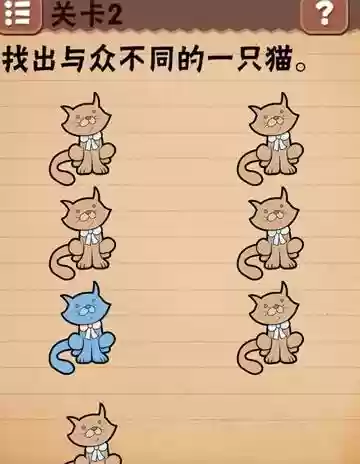 关卡2
?
找出与众不同的一只猫。